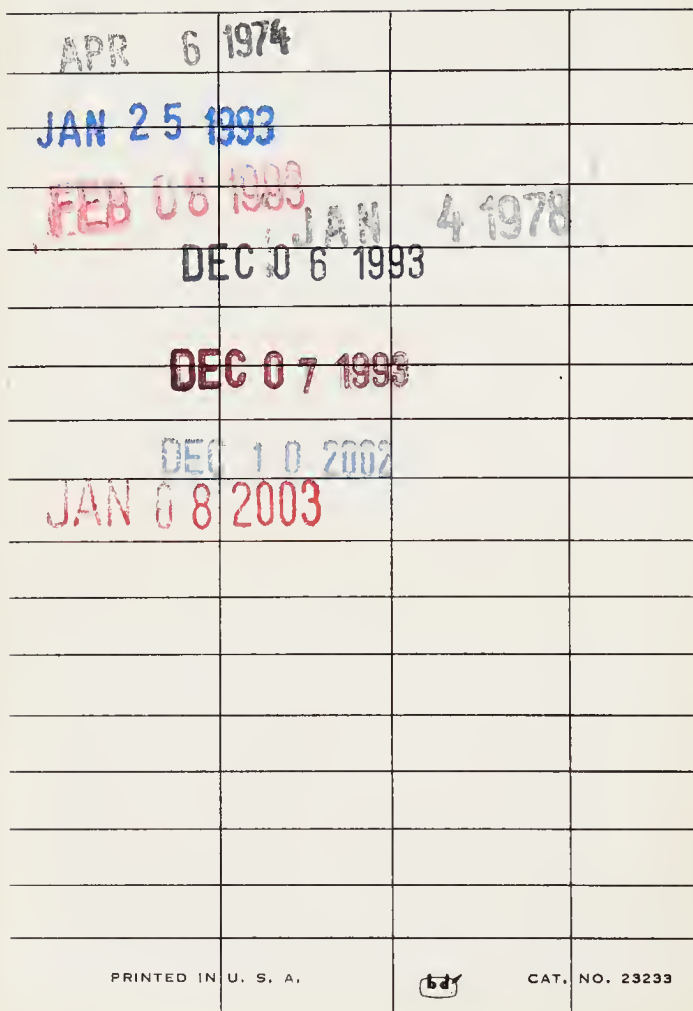 APR 6 1974
JAN 25 1993
FEB 06 1993
JAN 4 1978
DEC 06 1993
DEC 07 1993
DEC 10 2002
JAN 08 2003
PRINTED IN U. S. A. bd CAT. NO. 23233